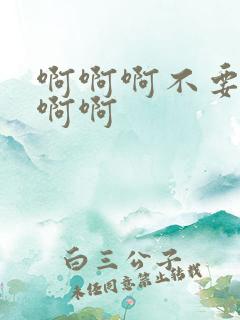 啊啊啊不要
啊啊
白三公子
未经同意禁止转载